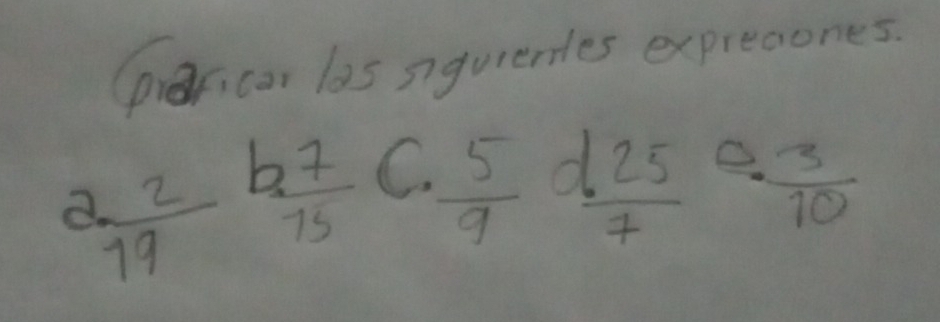 Graficar las siguientes expreciones.
a. 2/19 b. 7/15 c. 5/9 d. 25/7 e. 3/10